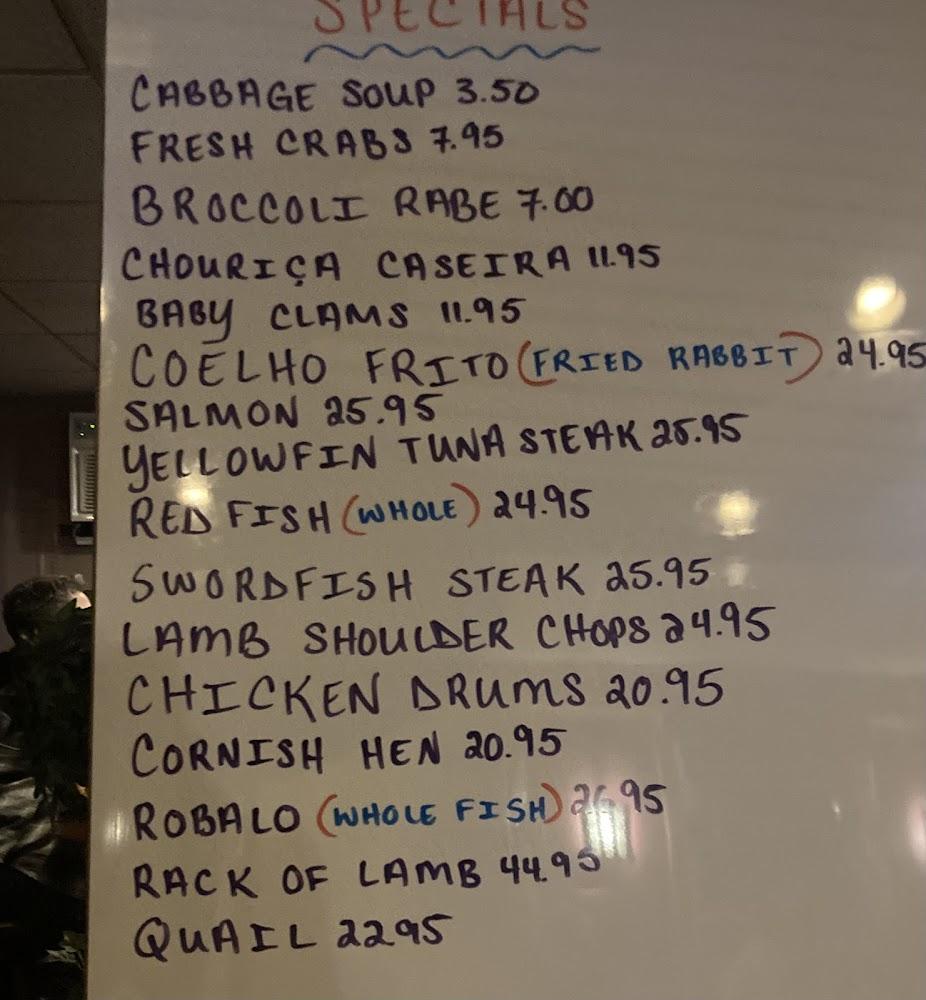 SPECIALS
CABBAGE SOUP 3.50
FRESH CRABS 7.95
BROCCOLI RABE 7.00
CHOURIÇA CASEIRA 11.95
BABY CLAMS 11.95
COELHO FRITO (FRIED RABBIT) 24.95
SALMON 25.95
YELLOWFIN TUNA STEAK 25.95
RED FISH (WHOLE) 24.95
SWORDFISH STEAK 25.95
LAMB SHOULDER CHOPS 24.95
CHICKEN DRUMS 20.95
CORNISH HEN 20.95
ROBALO (WHOLE FISH) 26.95
RACK OF LAMB 44.95
QUAIL 22.95